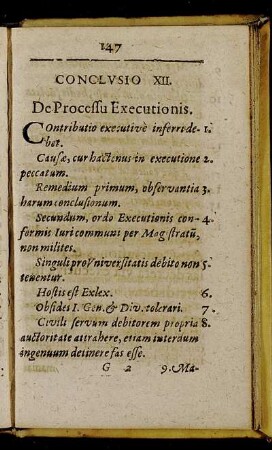 147
CONCLVSIO XII.
De Processu Executionis.
Contributio executivè inferri de- 1.
bet.
Causæ, cur hactenus in executione 2.
peccatum.
Remedium primum, observantia 3.
harum conclusionum.
Secundum, ordo Executionis con- 4.
formis Iuri communi per Magistratũ,
non milites.
Singuli pro Vniversitatis debito non 5.
tenentur.
Hostis est Exlex. 6.
Obsides I. Gen. & Div. tolerari. 7.
Civili servum debitorem propria 8.
auctoritate attrahere, etiam interdum
ingenuum detinere fas esse.
G 2 9. Ma-